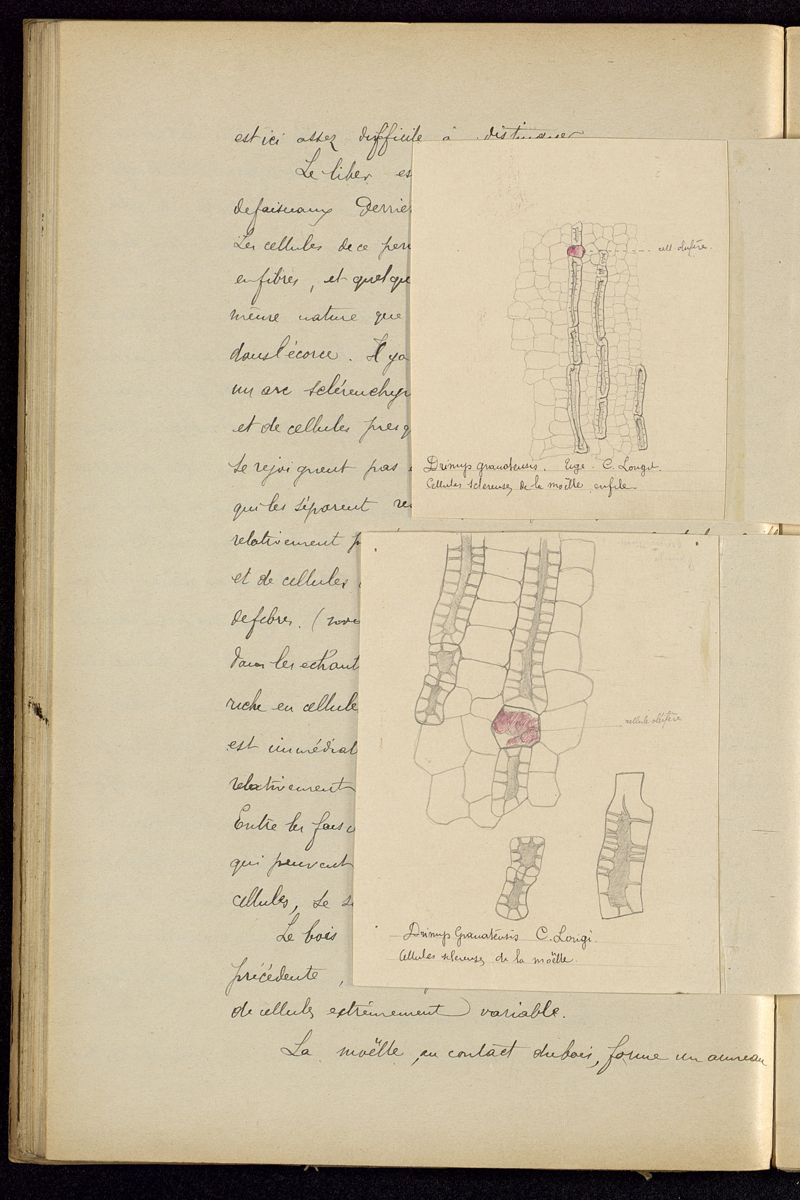 est ici assez difficile à distinguer
Le liber es
de faisceaux Derriè
Les cellules de ce péri
en fibres, et quelque
même nature que
dans l'écorce. Il y a
un arc sclérenchy
et de cellules presq
se rejoignent pas
qui les séparent re
relativement p
et de cellules
de fibres. (
dans les échant
riche en cellule
est immédiat
relativement
Entre les fais
qui peuvent
cellules, se s
Le bois
précédente,
de cellules extrêmement variable.
La moëlle, au contact du bois, forme un anneau
cell. oléifère.
Drimys granatensis. Tige. C. Longit.
Cellules scléreuses de la moëlle en file
cellule oléifère
Drimys Granatensis C. Longi.
Cellules scléreuses de la moëlle.